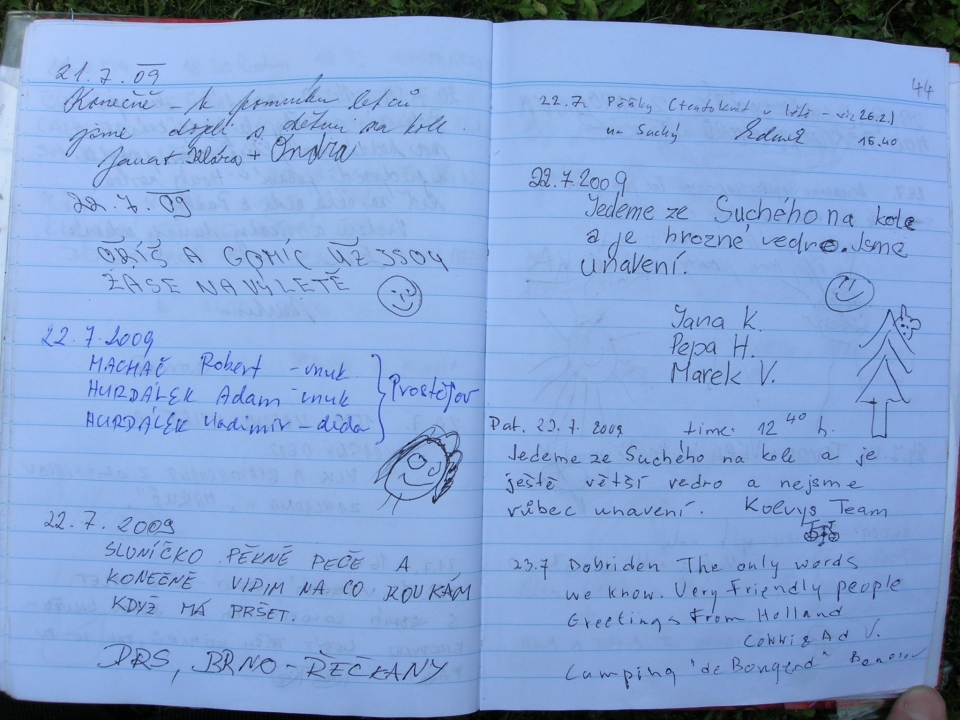 21.7.09
Konečně – k pomníku letců
jsme dojeli s dětmi na kole.
Jana + Klára + Ondra
22.7.09
OŘÍŠ A GOMÍC UŽ JSOU
ZASE NA VÝLETĚ
22.7.2009
MACHAČ Robert – vnuk
HURDÁLEK Adam vnuk
HURDÁLEK Vladimír – děda
Prostějov
22.7.2009
SLUNÍČKO PĚKNĚ PEČE A
KONEČNĚ VIDIM NA CO KOUKÁM
KDYŽ MÁ PRŠET.
DRS, BRNO – ŘEČKANY
44
22.7. Pěšky (tentokrát v létě – viz 26.2.)
na Suchý 15.40
22.7.2009
Jedeme ze Suchého na kole
a je hrozné vedro. Jsme
unavení.
Jana K.
Pepa H.
Marek V.
Dat. 22.7.2009 time: 12 40 h.
Jedeme ze Suchého na kole a je
ještě větší vedro a nejsme
vůbec unavení. Kolvys Team
23.7 Dobriden The only words
we know. Very Friendly people
Greetings From Holland
Ad V.
Camping "de Bongerd"